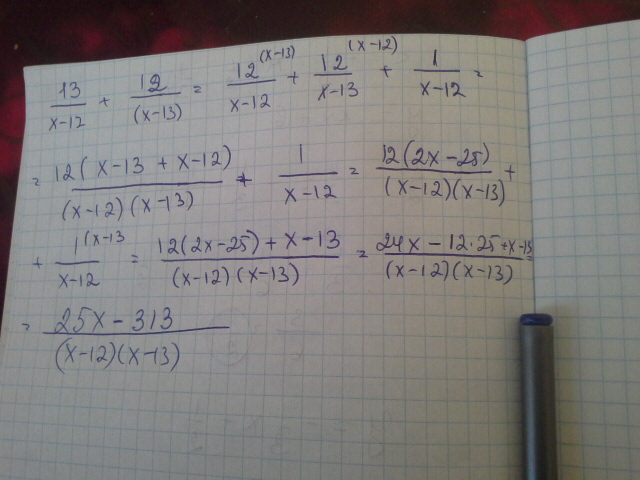 13/(x-12) + 12/(x-13) = 12^(x-13)/(x-12) + 12^(x-12)/(x-13) + 1/(x-12) =
= 12(x-13+x-12)/((x-12)(x-13)) + 1/(x-12) = 12(2x-25)/((x-12)(x-13)) +
+ 1^(x-13/(x-12) = (12(2x-25)+x-13)/((x-12)(x-13)) = (24x-12·25+x-13)/((x-12)(x-13)) =
= (25x-313)/((x-12)(x-13))